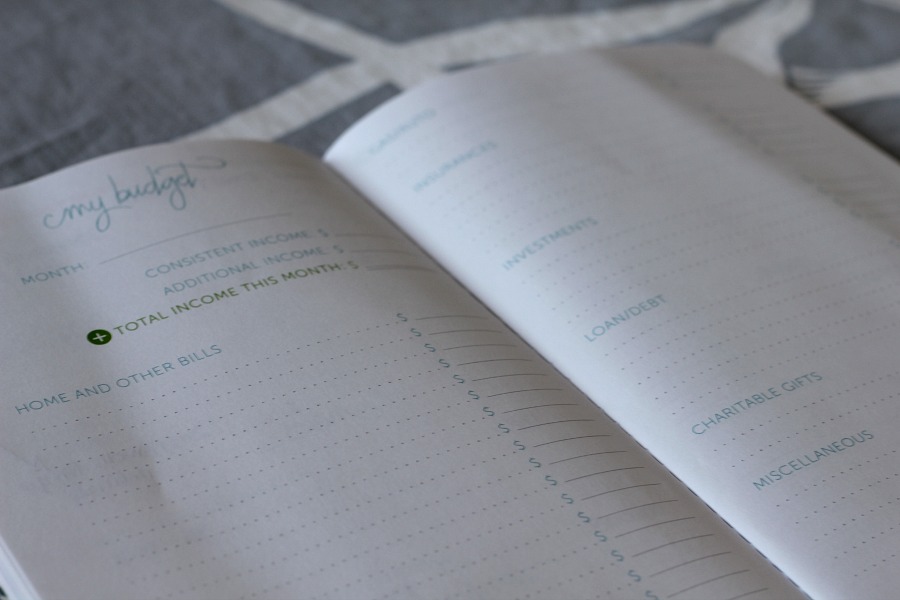 my budget
MONTH
CONSISTENT INCOME: $
ADDITIONAL INCOME: $
+ TOTAL INCOME THIS MONTH: $
HOME AND OTHER BILLS
$
$
$
$
$
$
$
$
$
$
$
INSURANCES
INVESTMENTS
LOAN/DEBT
CHARITABLE GIFTS
MISCELLANEOUS